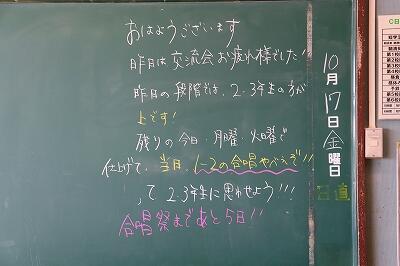 おはようございます
昨日は交流会お疲れ様でした!
昨日の段階では、2、3年生の方が
上です!
残りの今日、月曜、火曜で
仕上げて、当日、1-2の合唱やべえぞ!!
って2.3年生に思わせよう!!!
合唱祭まであと5日!!
10月17日金曜日
日直